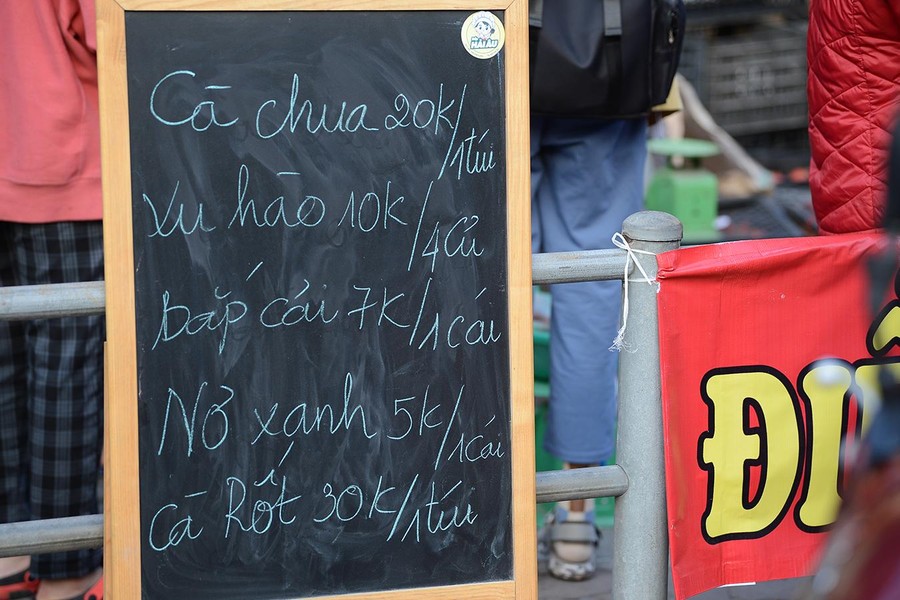 HẢI ÂU
Cà chua 20k/1túi
Xu hào 10k/4Củ
Bắp cải 7k/1cái
Nơ xanh 5k/1cái
Cà Rốt 30k/1túi